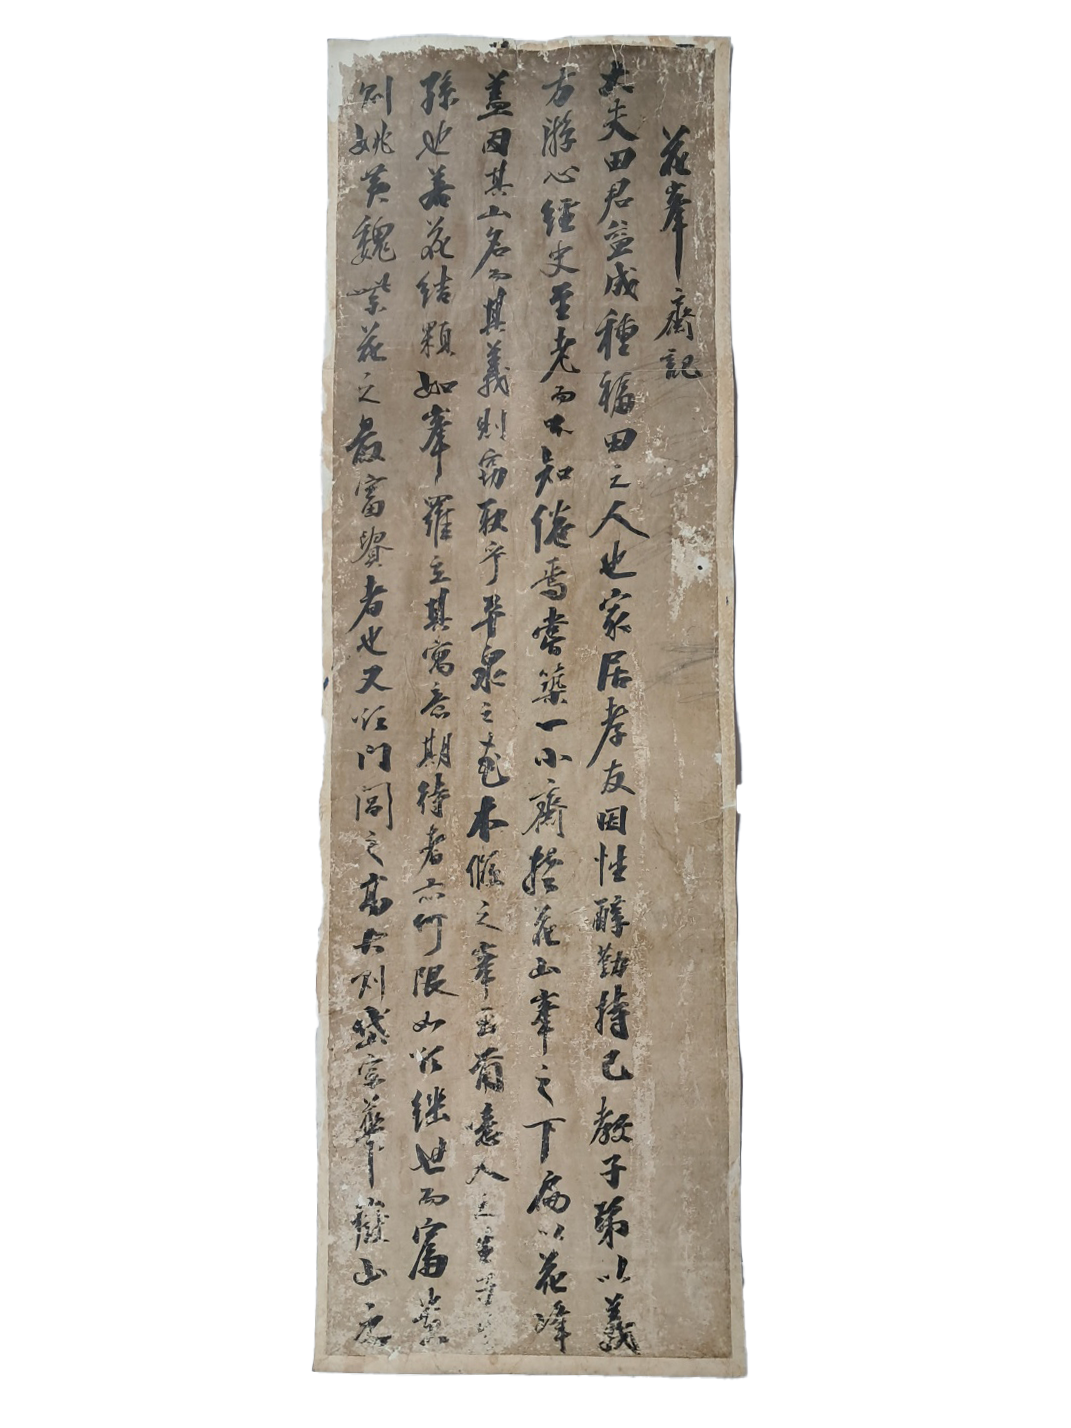 花峯齋記
大夫田君益成種福田之人也家居孝友因性醇勤持己教子弟以義
方游心經史至老而不知倦焉嘗築一小齋於花山峯之下扁以花峰
盖因其山名而其義則窃取乎平泉之花木假之峯 噫人之生
孫也若花結顆如峯羅立其寓意期待者亦何限如以継世而富貴
則姚黃魏紫花之最富貴者也又以門閭之高大則岱宗華 山之